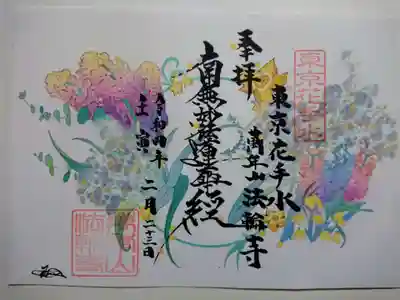 東京花手水
東京花手水
萬年山 法輪寺
奉拝
南無妙法蓮華経
令和四年
壬寅
二月二十三日